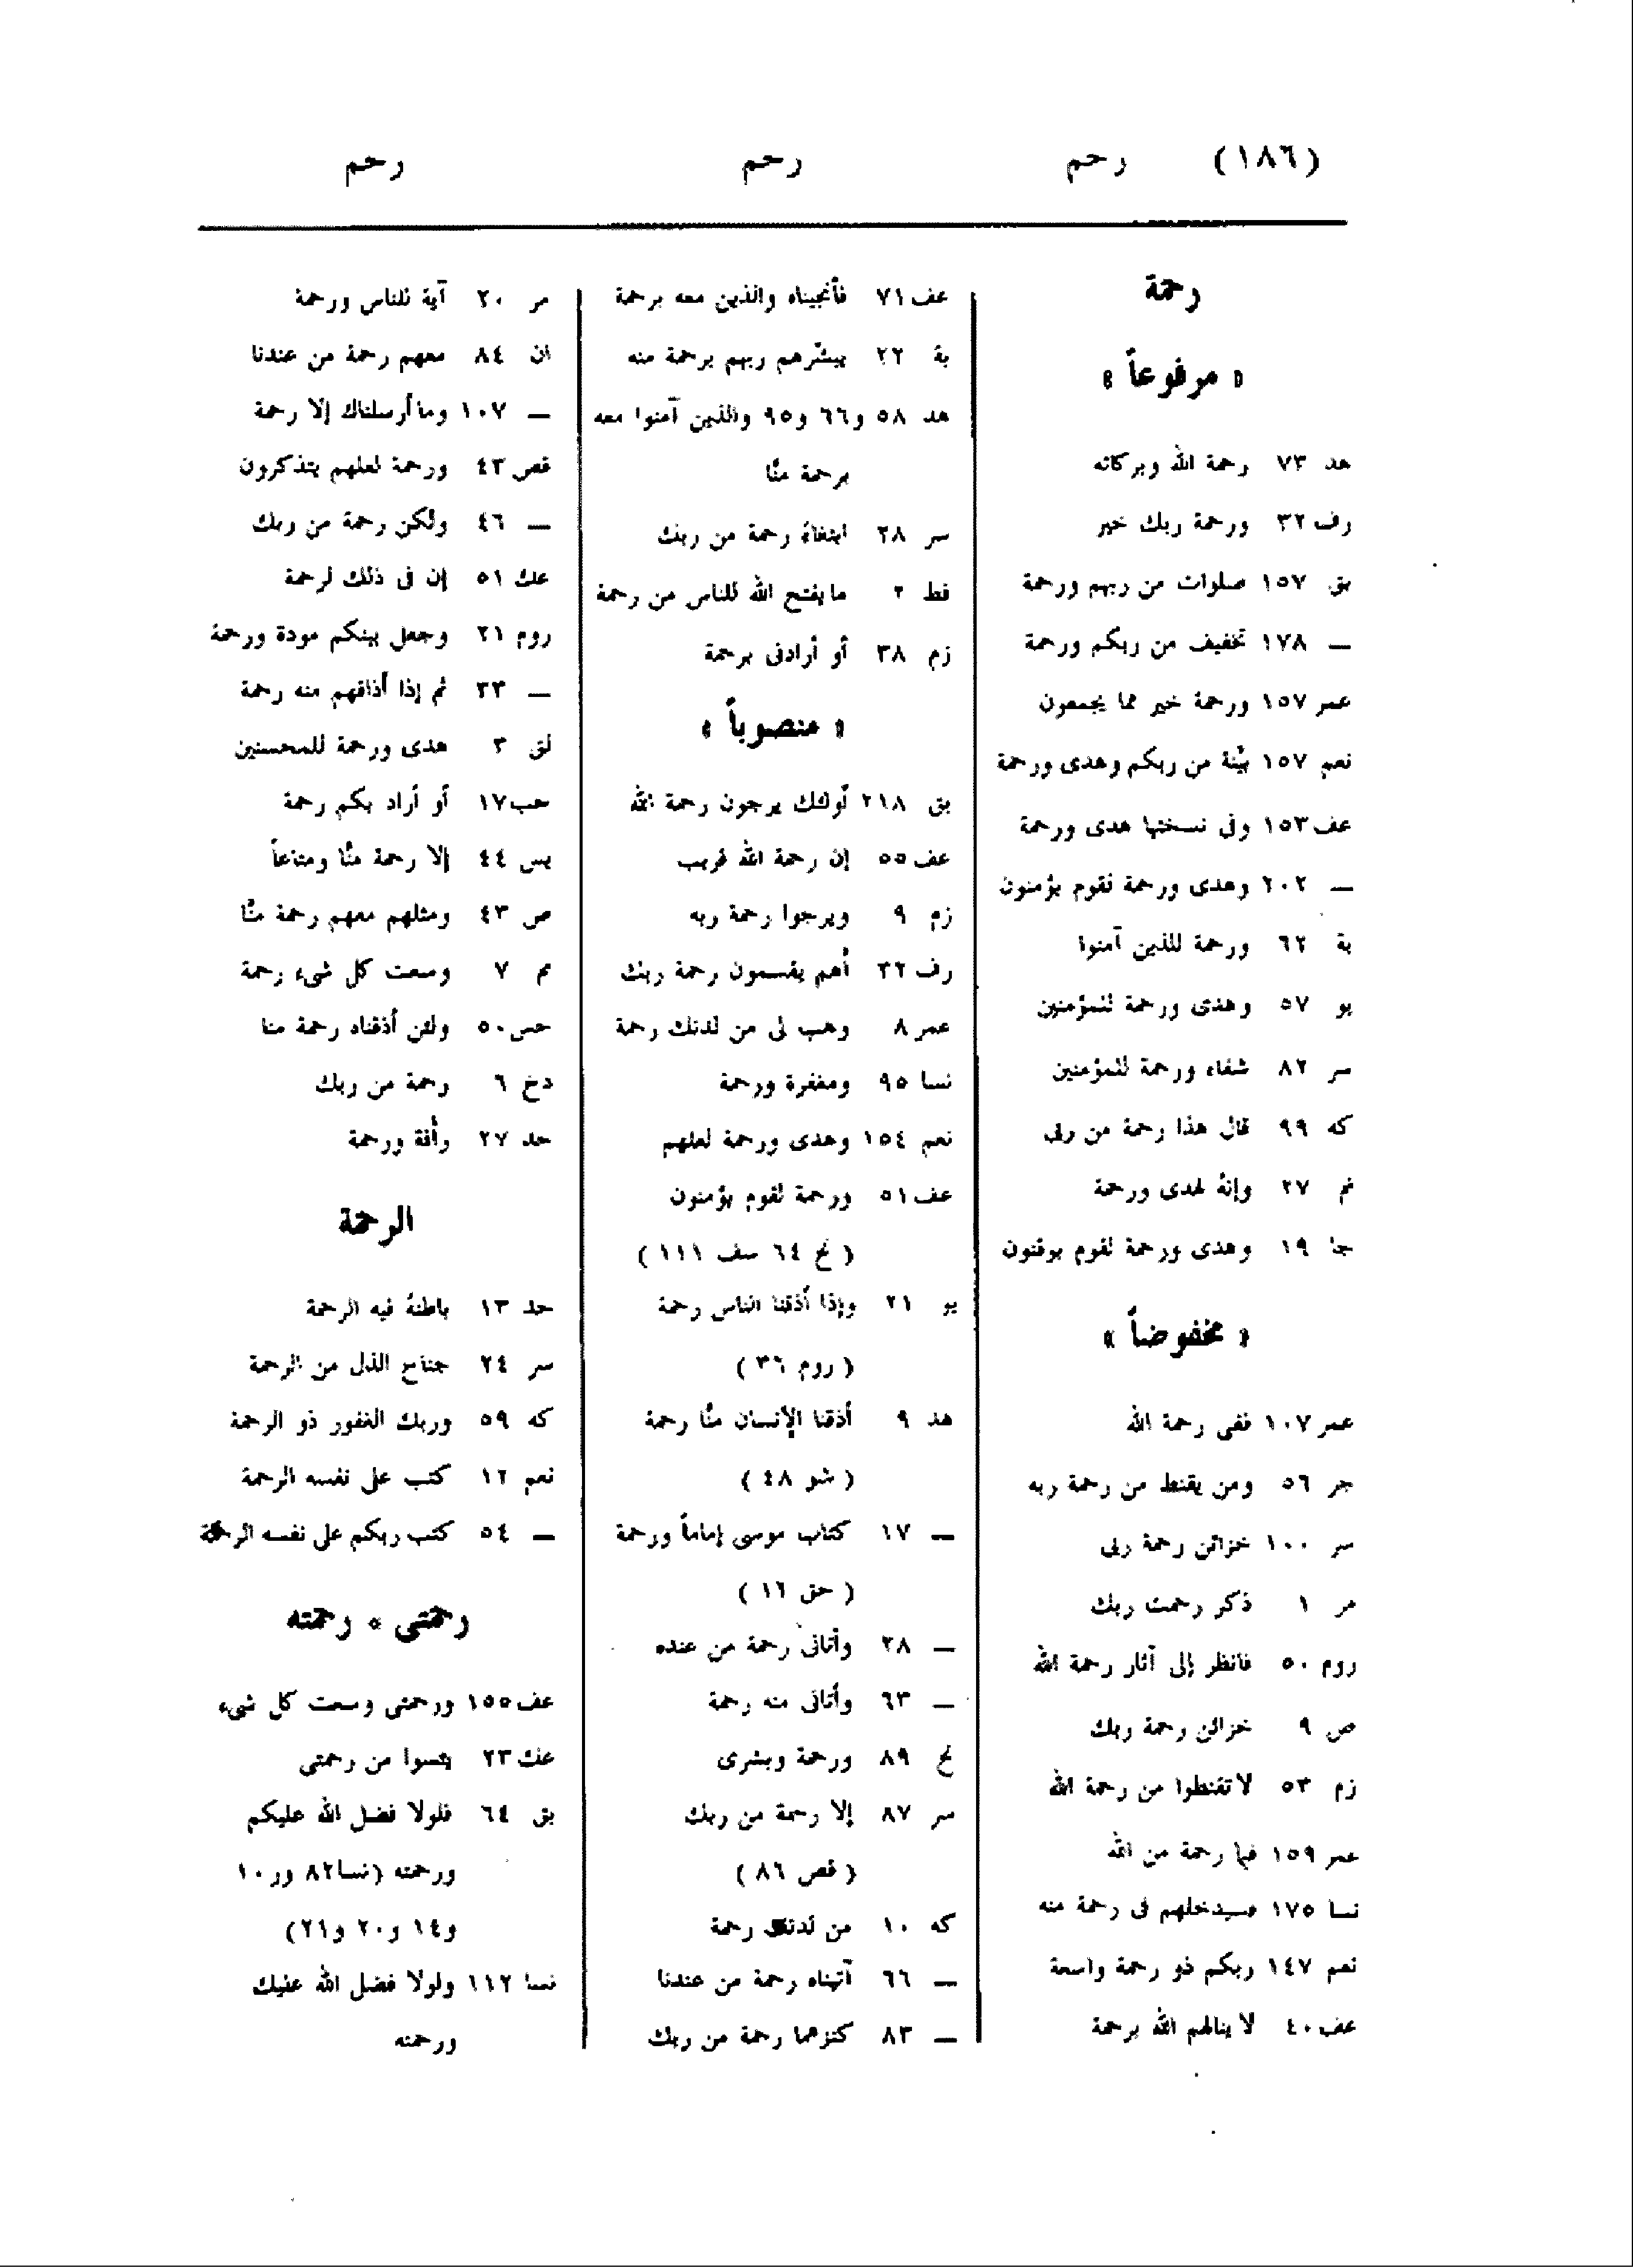 (١٨٦) رحم رحم رحم
رحمة
« مرفوعاً »
هد ٧٣ رحمة الله وبركاته
رف ٣٢ ورحمة ربك خير
بق ١٥٧ صلوات من ربهم ورحمة
— ١٧٨ تخفيف من ربكم ورحمة
عمر ١٥٧ ورحمة خير مما يجمعون
نعم ١٥٧ بيّنة من ربكم وهدى ورحمة
عف ١٥٣ وفى نسختها هدى ورحمة
— ٢٠٢ وهدى ورحمة لقوم يؤمنون
بة ٦٢ ورحمة للذين آمنوا
يو ٥٧ وهدى ورحمة للمؤمنين
سر ٨٢ شفاء ورحمة للمؤمنين
كه ٩٩ قال هذا رحمة من ربى
نم ٢٧ وإنه لهدى ورحمة
جا ١٩ وهدى ورحمة لقوم يوقنون
« مخفوضاً »
عمر ١٠٧ ففى رحمة الله
جر ٥٦ ومن يقنط من رحمة ربه
سر ١٠٠ خزائن رحمة ربى
مر ١ ذكر رحمت ربك
روم ٥٠ فانظر إلى آثار رحمة الله
ص ٩ خزائن رحمة ربك
زم ٥٣ لا تقنطوا من رحمة الله
عمر ١٥٩ فبما رحمة من الله
نسا ١٧٥ فسيدخلهم فى رحمة منه
نعم ١٤٧ ربكم ذو رحمة واسعة
عف ٤٠ لا ينالهم الله برحمة
عف ٧١ فأنجيناه والذين معه برحمة
بة ٢٢ يبشّرهم ربهم برحمة منه
هد ٥٨ و٦٦ و٩٥ والذين آمنوا معه
برحمة منّا
سر ٢٨ ابتغاء رحمة من ربك
فط ٢ ما يفتح الله للناس من رحمة
زم ٣٨ أو أرادنى برحمة
« منصوباً »
بق ٢١٨ أولئك يرجون رحمة الله
عف ٥٥ إن رحمة الله قريب
زم ٩ ويرجوا رحمة ربه
رف ٣٢ أهم يقسمون رحمة ربك
عمر ٨ وهب لى من لدنك رحمة
نسا ٩٥ ومغفرة ورحمة
نعم ١٥٤ وهدى ورحمة لعلهم
عف ٥١ ورحمة لقوم يؤمنون
( نح ٦٤ سف ١١١ )
يو ٢١ وإذا أذقنا الناس رحمة
( روم ٣٦ )
هد ٩ أذقنا الإنسان منّا رحمة
( شو ٤٨ )
— ١٧ كتاب موسى إماماً ورحمة
( حق ١٢ )
— ٢٨ وآتانى رحمة من عنده
— ٦٣ وآتانى منه رحمة
نح ٨٩ ورحمة وبشرى
سر ٨٧ إلا رحمة من ربك
( قص ٨٦ )
كه ١٠ من لدنك رحمة
— ٦٦ آتيناه رحمة من عندنا
— ٨٣ كنزهما رحمة من ربك
مر ٢٠ آية للناس ورحمة
ان ٨٤ معهم رحمة من عندنا
— ١٠٧ وما أرسلناك إلا رحمة
قص ٤٣ ورحمة لعلهم يتذكرون
— ٤٦ ولكن رحمة من ربك
عك ٥١ إن فى ذلك لرحمة
روم ٢١ وجعل بينكم مودة ورحمة
— ٣٣ ثم إذا أذاقهم منه رحمة
لق ٣ هدى ورحمة للمحسنين
حب ١٧ أو أراد بكم رحمة
يس ٤٤ إلا رحمة منّا ومتاعاً
ص ٤٣ ومثلهم معهم رحمة منّا
مم ٧ وسعت كل شىء رحمة
حس ٥٠ ولئن أذقناه رحمة منا
دخ ٦ رحمة من ربك
حد ٢٧ رأفة ورحمة
الرحمة
حد ١٣ باطنه فيه الرحمة
سر ٢٤ جناح الذل من الرحمة
كه ٥٩ وربك الغفور ذو الرحمة
نعم ١٢ كتب على نفسه الرحمة
— ٥٤ كتب ربكم على نفسه الرحمة
رحمتى * رحمته
عف ١٥٥ ورحمتى وسعت كل شىء
عك ٢٣ يئسوا من رحمتى
بق ٦٤ فلولا فضل الله عليكم
ورحمته (نسا ٨٢ ور ١٠
و١٤ و٢٠ و٢١)
نسا ١١٢ ولولا فضل الله عليك
ورحمته